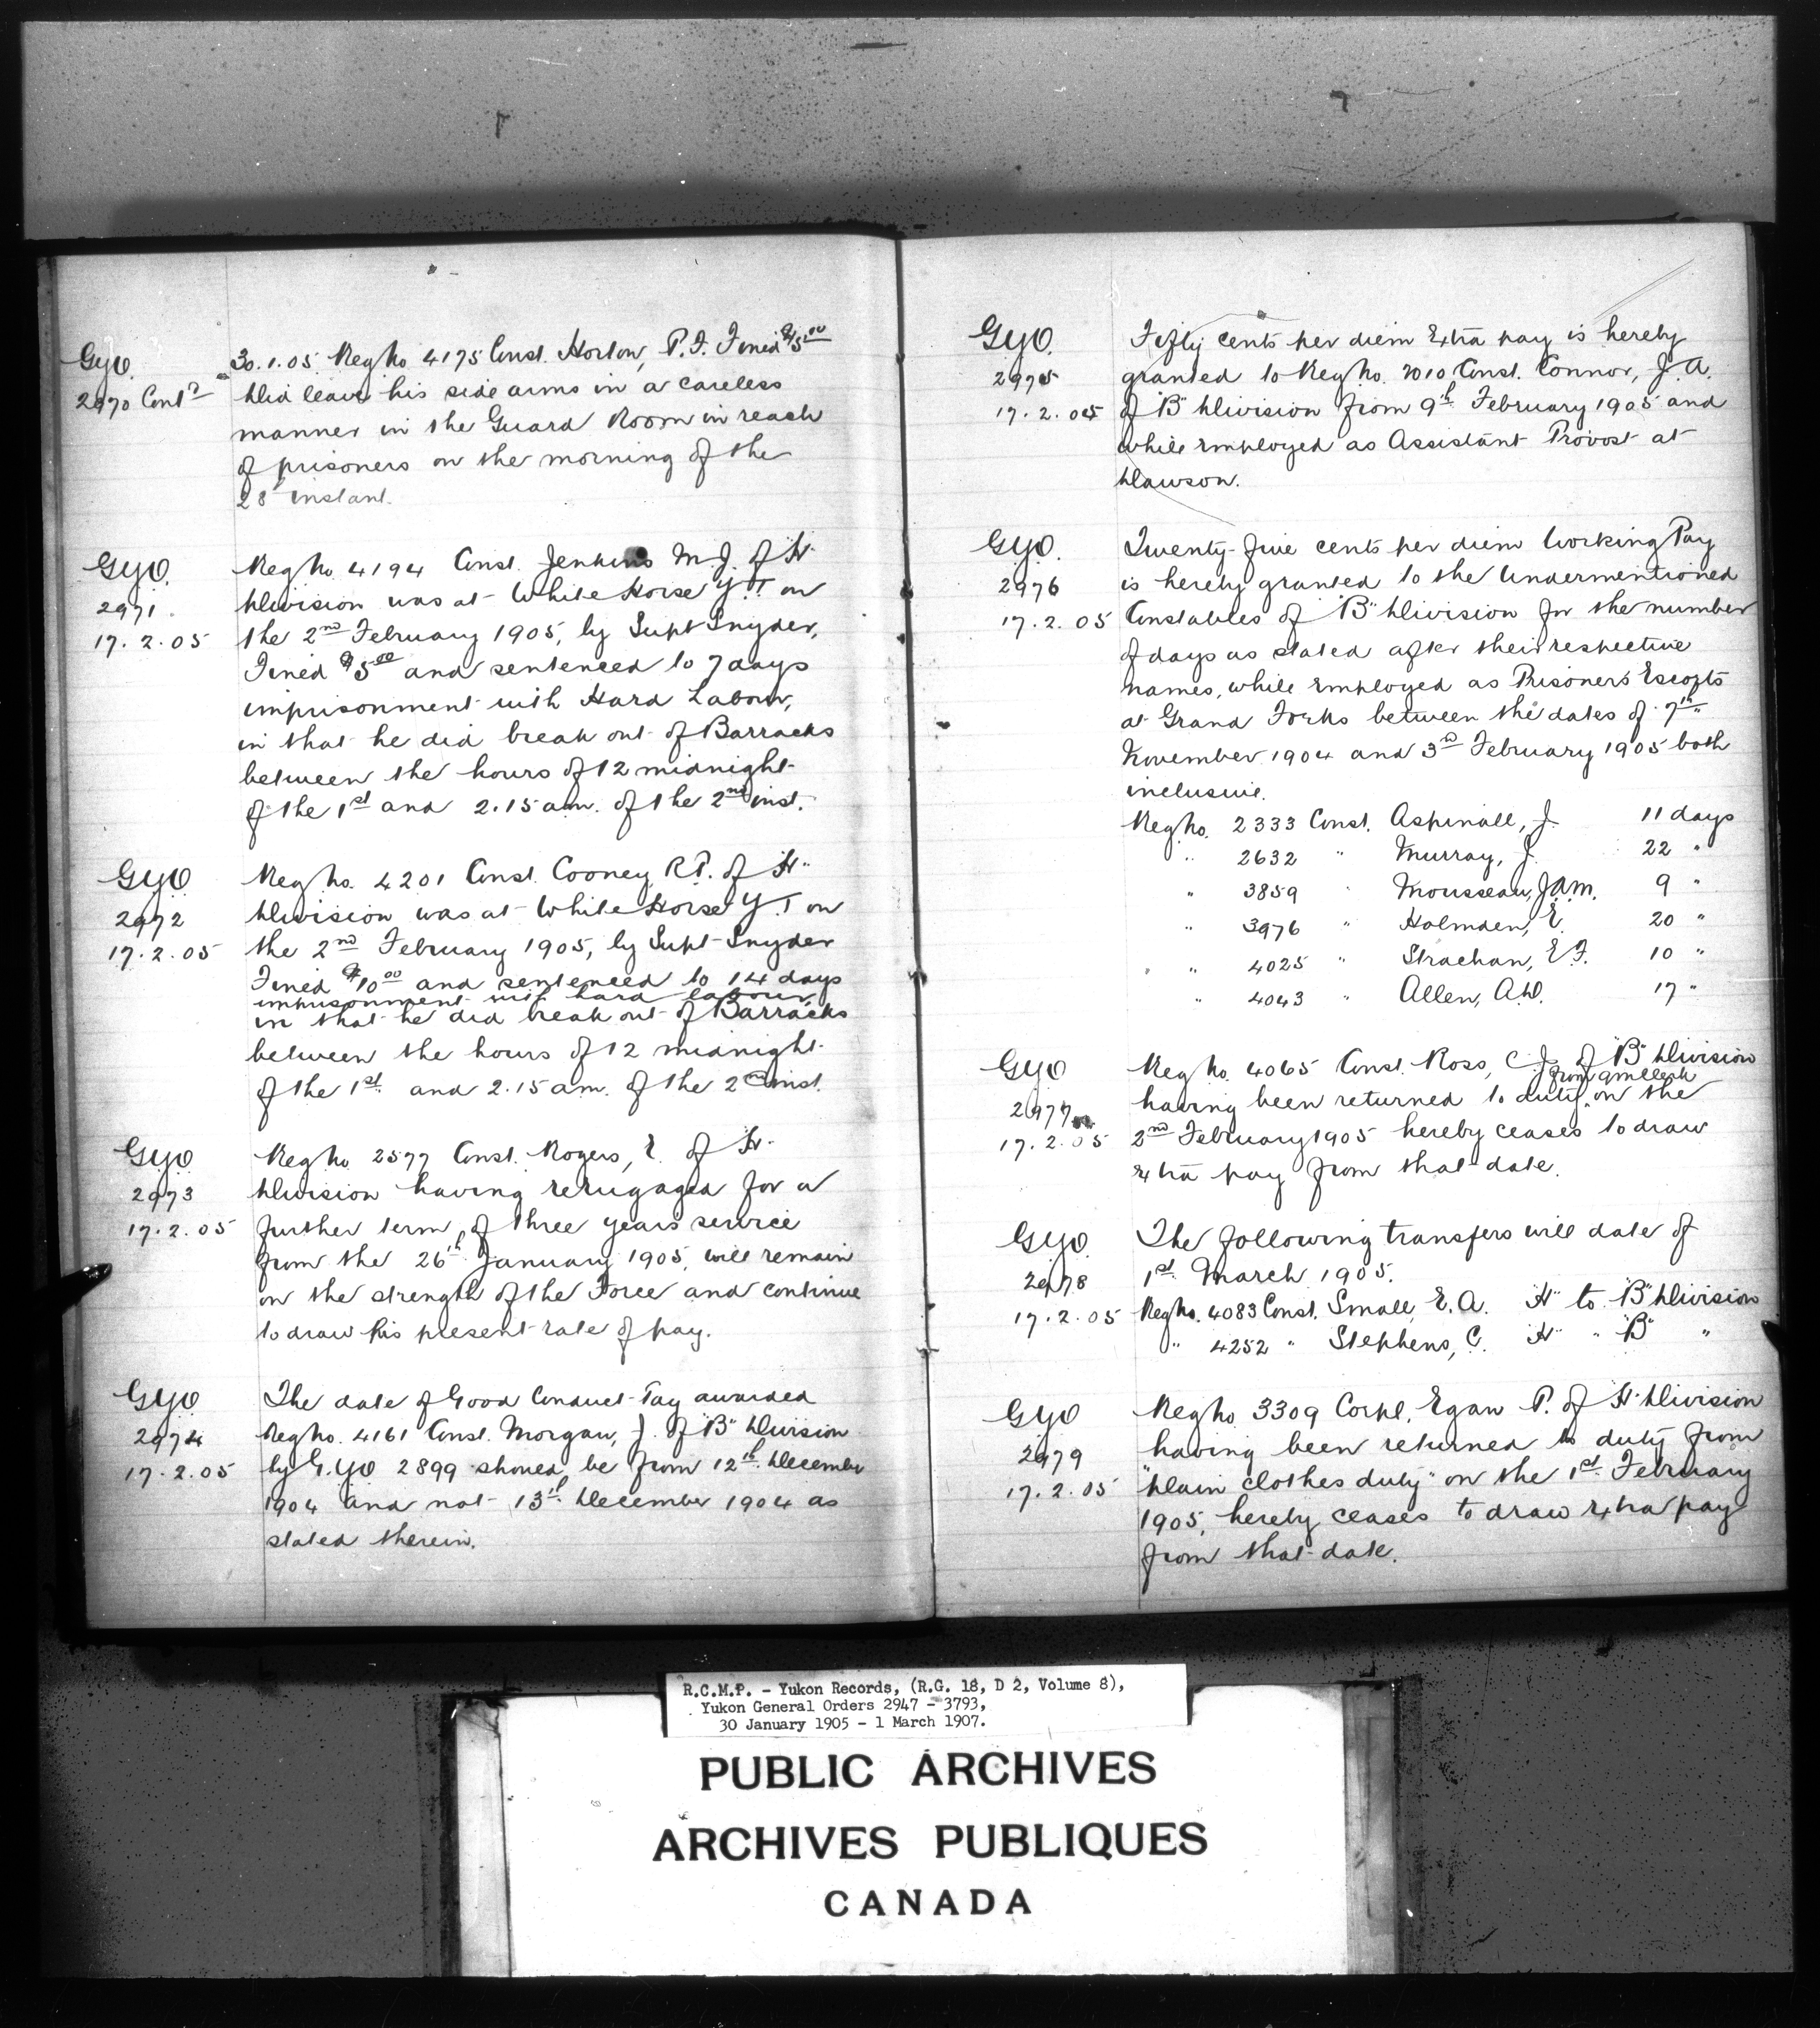 GYO.
2970 Contd
30.1.05. Reg No 4175 Const. Horton, P.F. Fined $5.00
Did leave his side arms in a careless
manner in the Guard Room in reach
of prisoners on the morning of the
28th instant.
GYO.
2971.
17.2.05
Reg No 4194 Const. Jenkins M.J. of "H"
Division was at White Horse Y.T. on
the 2nd February 1905, by Supt Snyder,
Fined $5.00 and sentenced to 7 days
imprisonment with Hard Labour,
in that he did break out of Barracks
between the hours of 12 midnight
of the 1st and 2.15 a.m. of the 2nd inst.
GYO
2972
17.2.05
Reg No. 4201 Const. Cooney R.P. of "H"
Division was at White Horse Y.T on
the 2nd February 1905, by Supt Snyder
Fined $10.00 and sentenced to 14 days
imprisonment with hard labour,
in that he did break out of Barracks
between the hours of 12 midnight
of the 1st and 2.15 a.m. of the 2nd inst.
GYO
2973
17.2.05
Reg No 2577 Const. Rogers, E. of "H"
Division having rengaged for a
further term of three years service
from the 26th January 1905, will remain
on the strength of the Force and continue
to draw his present rate of pay.
GYO
2974
17.2.05
The date of Good Conduct Pay awarded
Reg No. 4161 Const. Morgan, J. of "B" Division
by G.YO 2899 should be from 12th December
1904 and not 13th December 1904 as
stated therein.
GYO.
2975
17.2.05
Fifty cents per diem Extra pay is hereby
granted to Reg No. 2010 Const. Connor, J.A.
of "B" Division from 9th February 1905 and
while employed as Assistant Provost at
Dawson.
GYO.
2976
17.2.05
Twenty-five cents per diem Working Pay
is hereby granted to the Undermentioned
Constables of "B" Division for the number
of days as stated after their respective
names, while employed as Prisoners Escorts
at Grand Forks between the dates of 7th
November 1904 and 3rd February 1905 both
inclusive.
Reg No. 2333 Const. Aspinall, J. 11 days
" 2632 " Murray, J. 22 "
" 3859 " Mousseau, J.A.M. 9 "
" 3976 " Holmden, E. 20 "
" 4025 " Strachan, E.F. 10 "
" 4043 " Allen, A.W. 17 "
GYO
2977
17.2.05
Reg No. 4065 Const. Ross, C.J. of "B" Division
from qm clerk
having been returned to duty on the
2nd February 1905 hereby ceases to draw
extra pay from that date.
GYO
2978
17.2.05
The following transfers will date of
1st March 1905.
Reg No. 4083 Const. Small, E.A. "H" to "B" Division
" 4252 " Stephens, C. "H" " "B" "
GYO
2979
17.2.05
Reg No. 3309 Corpl. Egan P. of "H" Division
having been returned to duty from
"plain clothes duty" on the 1st February
1905, hereby ceases to draw extra pay
from that date.
R.C.M.P. - Yukon Records, (R.G. 18, D 2, Volume 8),
Yukon General Orders 2947 - 3793,
30 January 1905 - 1 March 1907.
PUBLIC ARCHIVES
ARCHIVES PUBLIQUES
CANADA